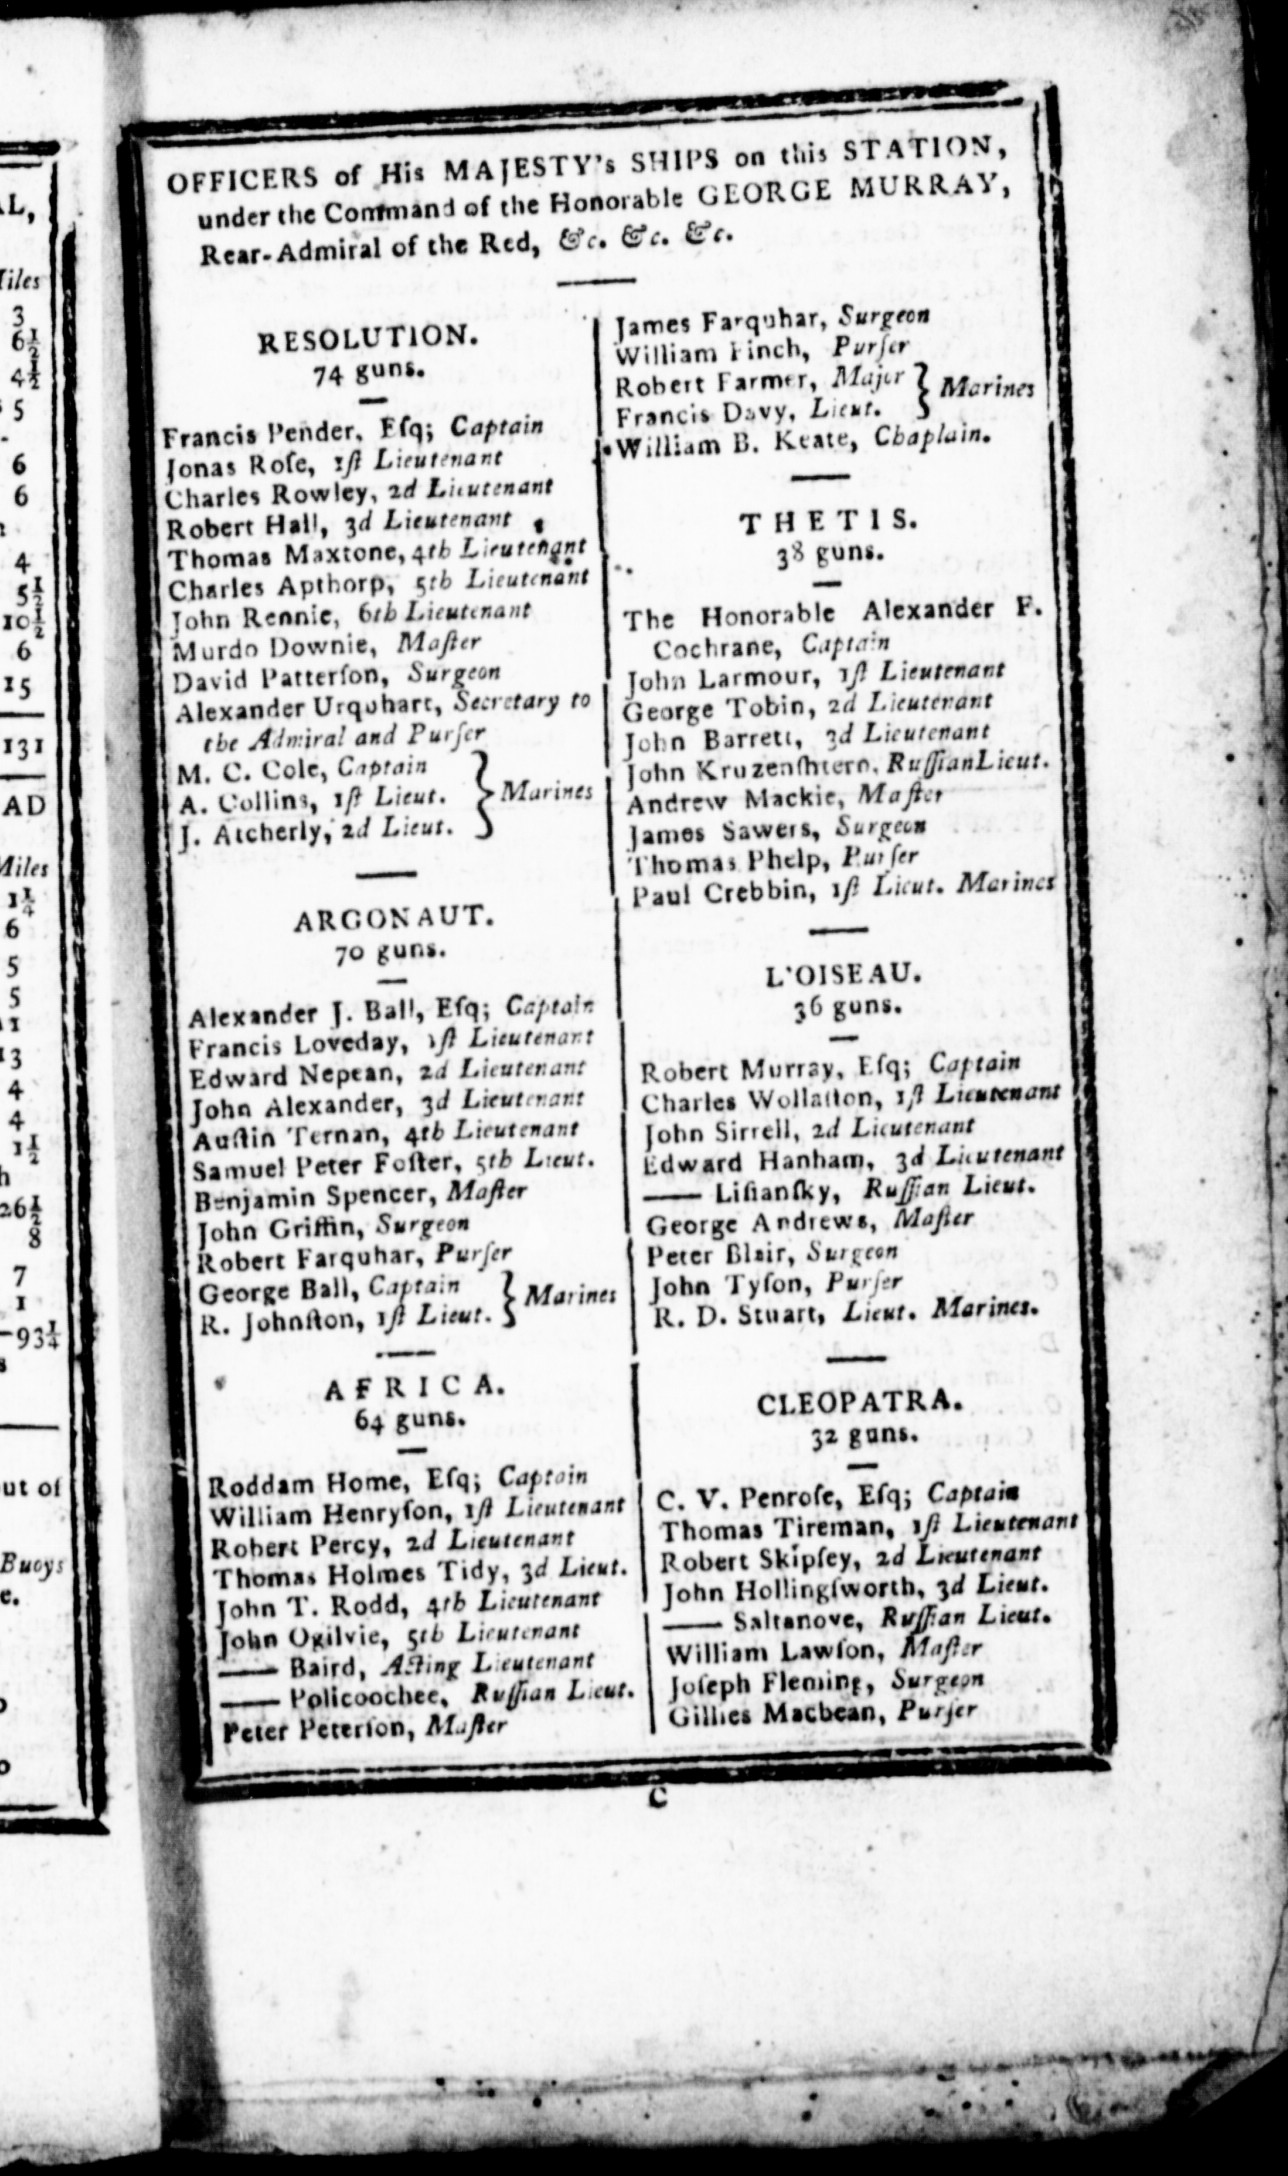 AL,
Miles
3
6½
4½
5
6
6
4
5½
10½
6
15
131
AD
Miles
1¼
6
5
5
11
13
4
4
1½
26½
8
7
1
—93¼
out of
Buoys
e.
OFFICERS of His MAJESTY's SHIPS on this STATION,
under the Command of the Honorable GEORGE MURRAY,
Rear-Admiral of the Red, &c. &c. &c.
RESOLUTION.
74 guns.
Francis Pender, Eſq; Captain
Jonas Roſe, 1ſt Lieutenant
Charles Rowley, 2d Lieutenant
Robert Hall, 3d Lieutenant
Thomas Maxtone, 4th Lieutenant
Charles Apthorp, 5th Lieutenant
John Rennie, 6th Lieutenant
Murdo Downie, Maſter
David Patterſon, Surgeon
Alexander Urquhart, Secretary to
the Admiral and Purſer
M. C. Cole, Captain
A. Collins, 1ſt Lieut. } Marines
J. Atcherly, 2d Lieut.
ARGONAUT.
70 guns.
Alexander J. Ball, Eſq; Captain
Francis Loveday, 1ſt Lieutenant
Edward Nepean, 2d Lieutenant
John Alexander, 3d Lieutenant
Auſtin Ternan, 4th Lieutenant
Samuel Peter Foſter, 5th Lieut.
Benjamin Spencer, Maſter
John Griffin, Surgeon
Robert Farquhar, Purſer
George Ball, Captain } Marines
R. Johnſton, 1ſt Lieut.
AFRICA.
64 guns.
Roddam Home, Eſq; Captain
William Henryſon, 1ſt Lieutenant
Robert Percy, 2d Lieutenant
Thomas Holmes Tidy, 3d Lieut.
John T. Rodd, 4th Lieutenant
John Ogilvie, 5th Lieutenant
—— Baird, Acting Lieutenant
—— Policoochee, Ruſſian Lieut.
Peter Peterſon, Maſter
James Farquhar, Surgeon
William Finch, Purſer
Robert Farmer, Major } Marines
Francis Davy, Lieut.
William B. Keate, Chaplain.
THETIS.
38 guns.
The Honorable Alexander F.
Cochrane, Captain
John Larmour, 1ſt Lieutenant
George Tobin, 2d Lieutenant
John Barrett, 3d Lieutenant
John Kruzenſhtern, Ruſſian Lieut.
Andrew Mackie, Maſter
James Sawers, Surgeon
Thomas Phelp, Purſer
Paul Crebbin, 1ſt Lieut. Marines
L'OISEAU.
36 guns.
Robert Murray, Eſq; Captain
Charles Wollaſton, 1ſt Lieutenant
John Sirrell, 2d Lieutenant
Edward Hanham, 3d Lieutenant
—— Liſianſky, Ruſſian Lieut.
George Andrews, Maſter
Peter Blair, Surgeon
John Tyſon, Purſer
R. D. Stuart, Lieut. Marines.
CLEOPATRA.
32 guns.
C. V. Penroſe, Eſq; Captain
Thomas Tireman, 1ſt Lieutenant
Robert Skipſey, 2d Lieutenant
John Hollingſworth, 3d Lieut.
—— Saltanove, Ruſſian Lieut.
William Lawſon, Maſter
Joſeph Fleming, Surgeon
Gillies Macbean, Purſer
C